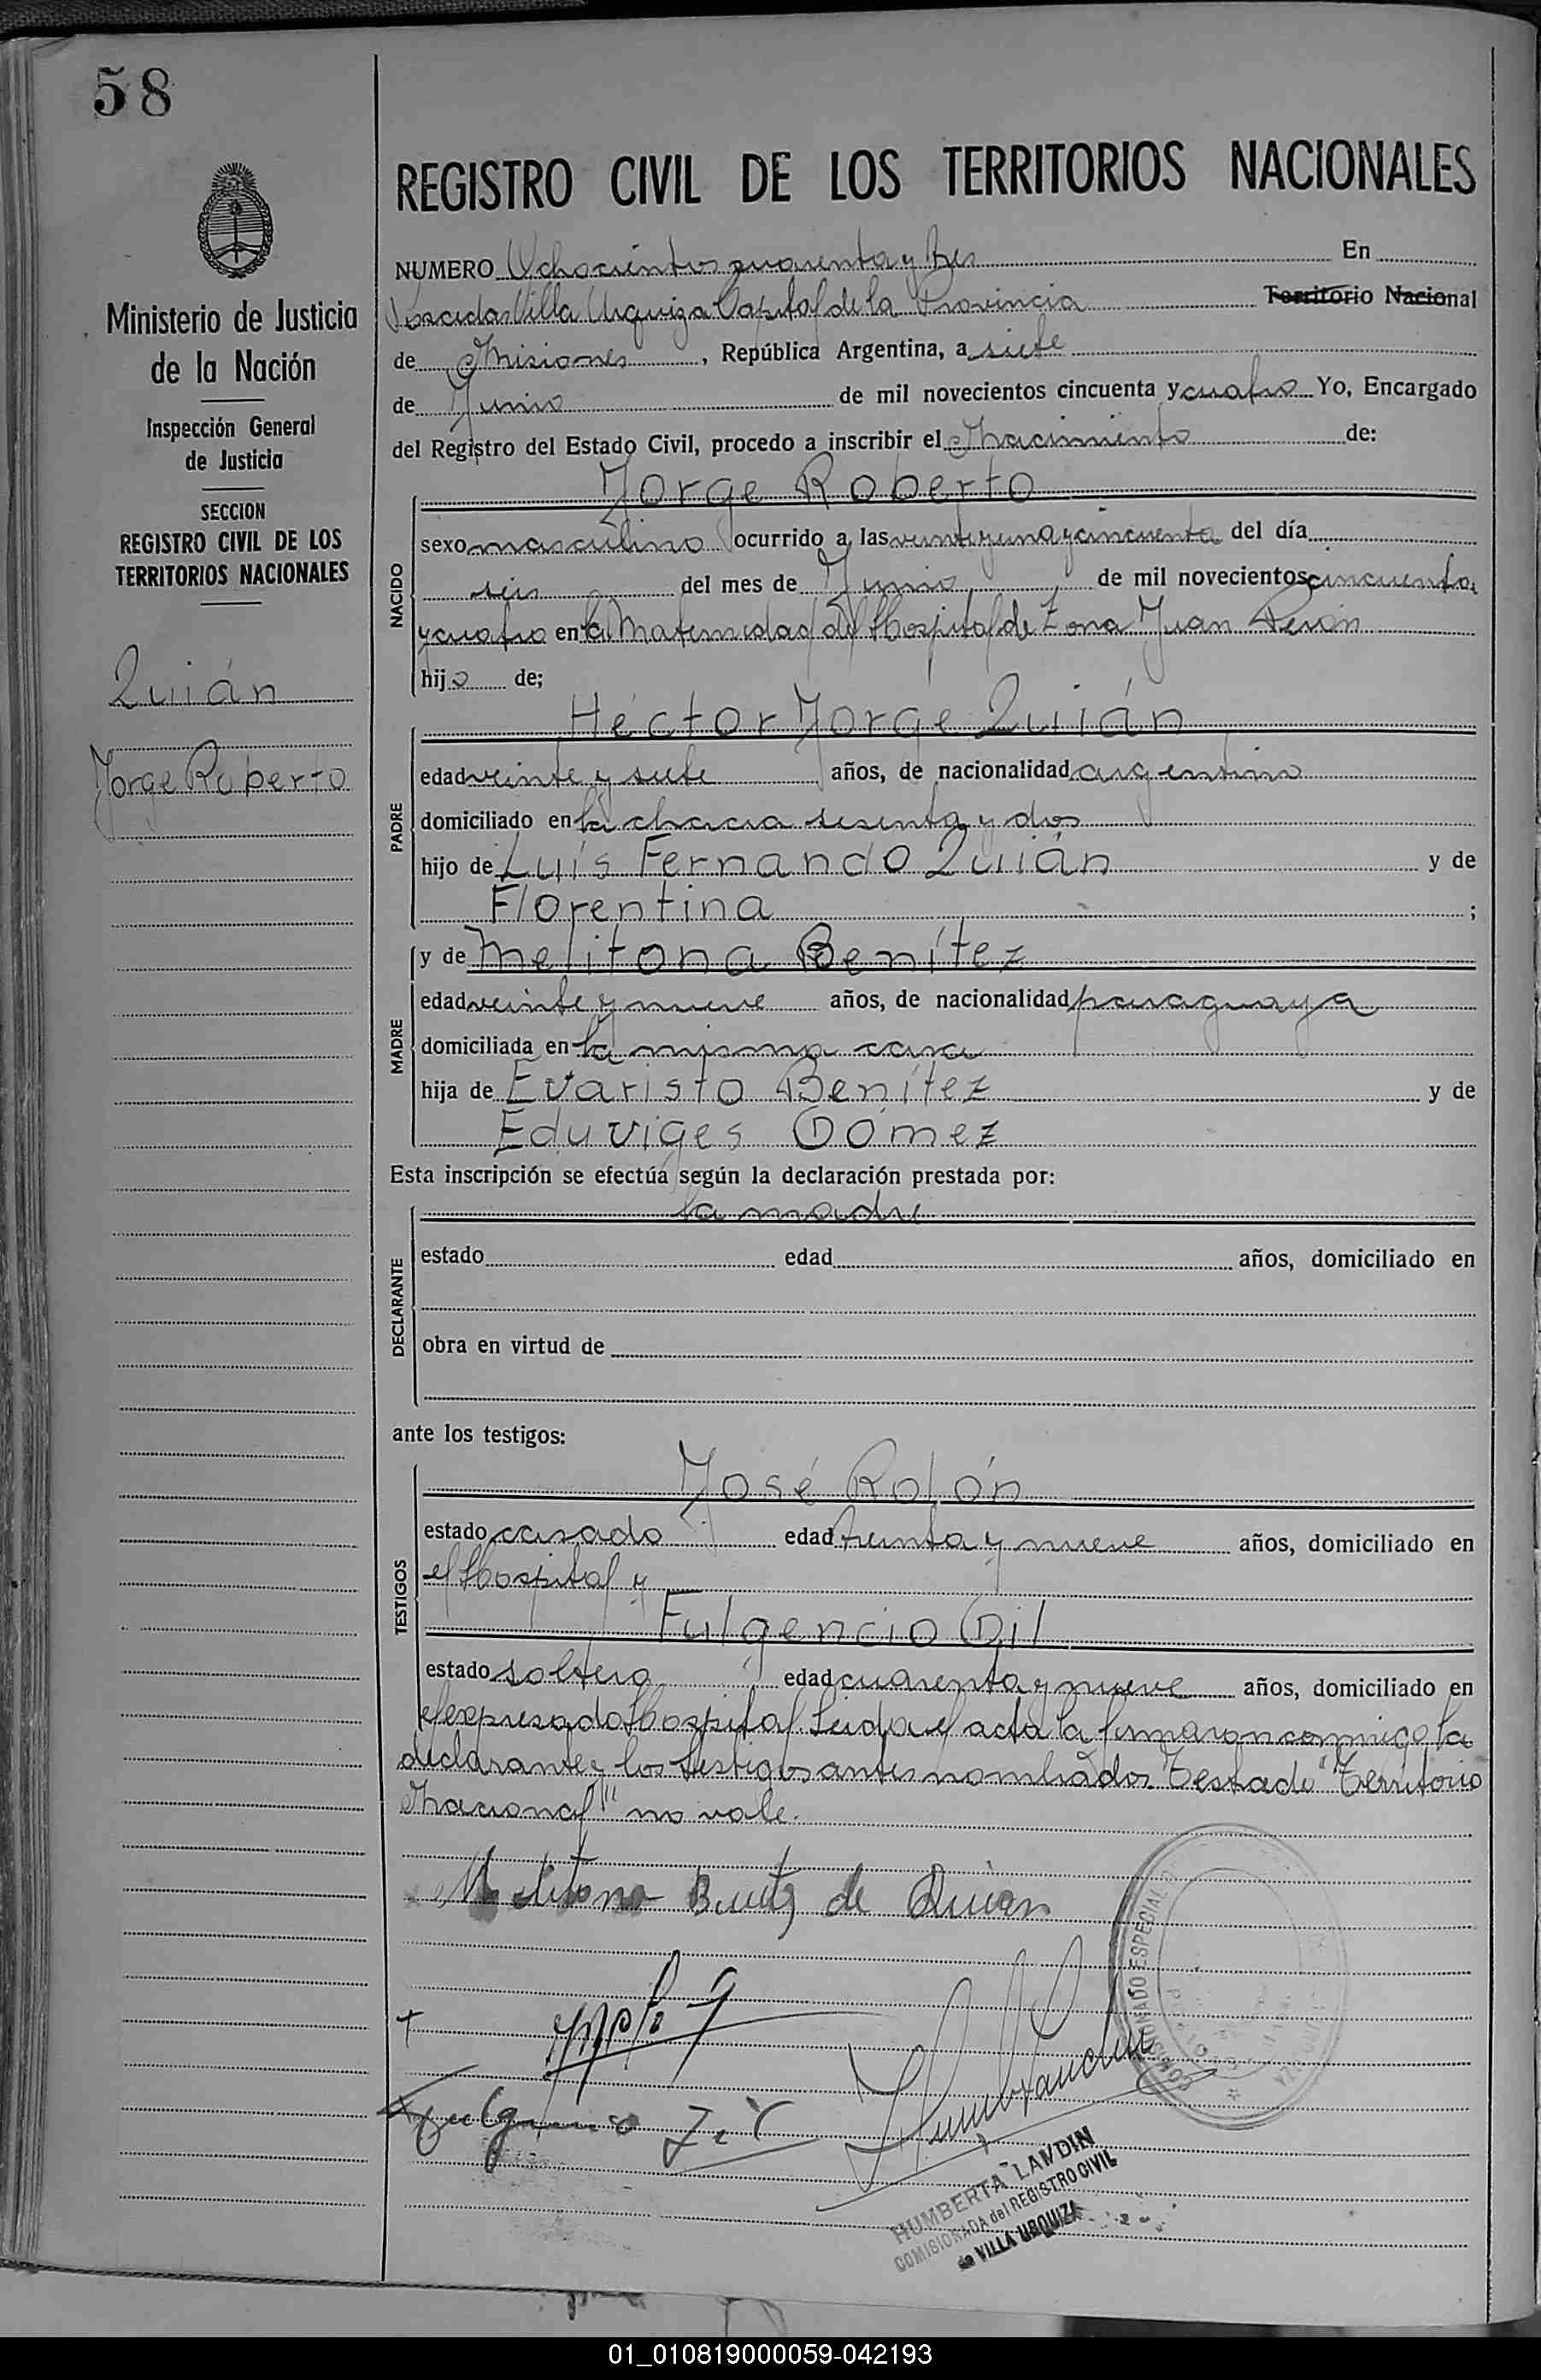 58
REGISTRO CIVIL DE LOS TERRITORIOS NACIONALES
Ministerio de Justicia
de la Nación
Inspección General
de Justicia
SECCION
REGISTRO CIVIL DE LOS
TERRITORIOS NACIONALES
Quián
Jorge Roberto
NUMERO Ochocientos cuarenta y tres En
Posadas Villa Urquiza Capital de la Provincia Territorio Nacional
de Misiones, República Argentina, a siete
de Junio de mil novecientos cincuenta y cuatro Yo, Encargado
del Registro del Estado Civil, procedo a inscribir el Nacimiento de:
NACIDO
Jorge Roberto
sexo masculino ocurrido a las veintiyuna y cincuenta del día
seis del mes de Junio de mil novecientos cincuenta
y cuatro en la Maternidad del Hospital de Zona Juan Perón
hijo de;
PADRE
Héctor Jorge Quián
edad veinte y siete años, de nacionalidad argentino
domiciliado en la chacra sesenta y dos
hijo de Luís Fernando Quián y de
Florentina ;
MADRE
y de Melitona Benítez
edad veinte y nueve años, de nacionalidad paraguaya
domiciliada en la misma casa
hija de Evaristo Benítez y de
Eduviges Gómez
Esta inscripción se efectúa según la declaración prestada por:
DECLARANTE
la madre
estado edad años, domiciliado en
obra en virtud de
ante los testigos:
TESTIGOS
José Rolón
estado casado edad treinta y nueve años, domiciliado en
el Hospital y
Fulgencio Gil
estado soltero edad cuarenta y nueve años, domiciliado en
el expresado Hospital. Leida el acta la firmaron conmigo la
declarante y los testigos antes nombrados. Testado "Territorio
Nacional" no vale.
Melitona Benitez de Quian
Fulgencio Gil
COMISIONADO ESPECIAL
HUMBERTA LANDIN
COMISIONADA del REGISTRO CIVIL
de VILLA URQUIZA
01_010819000059-042193